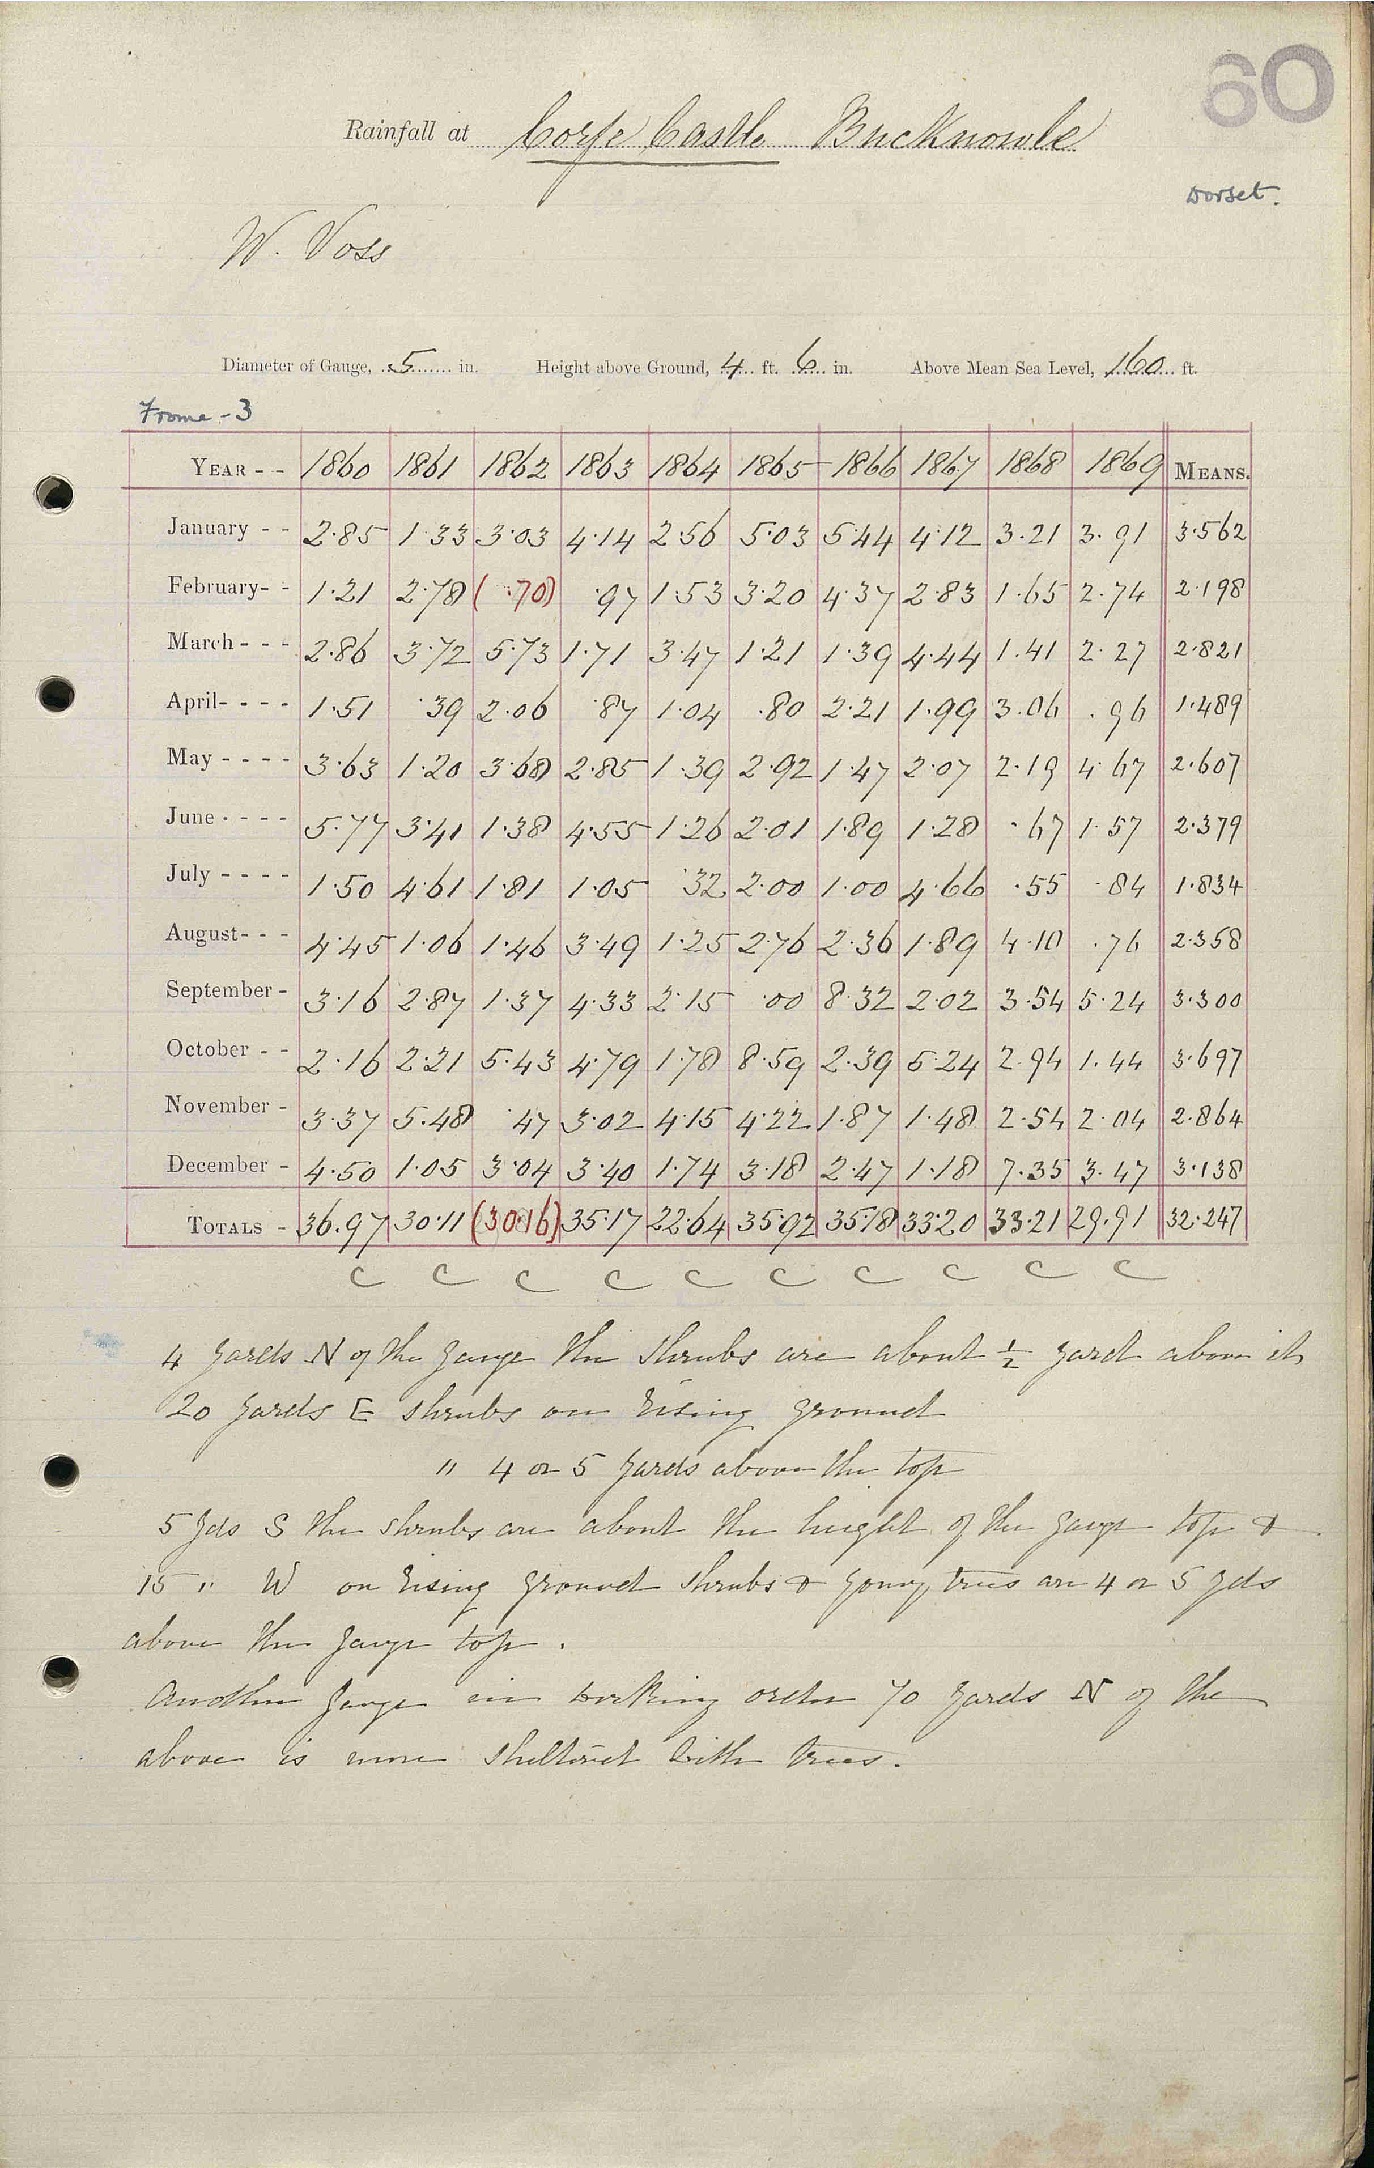 60
Rainfall at Corfe Castle Bucknowle
Dorset.
W. Voss
Diameter of Gauge, 5 in. Height above Ground, 4 ft. 6 in. Above Mean Sea Level, 160 ft.
Frome - 3
YEAR - - 1860 1861 1862 1863 1864 1865 1866 1867 1868 1869 MEANS.
January - - 2.85 1.33 3.03 4.14 2.56 5.03 5.44 4.12 3.21 3.91 3.562
February- - 1.21 2.78 (.70) .97 1.53 3.20 4.37 2.83 1.65 2.74 2.198
March - - - 2.86 3.72 5.73 1.71 3.47 1.21 1.39 4.44 1.41 2.27 2.821
April- - - - 1.51 .39 2.06 .87 1.04 .80 2.21 1.99 3.06 .96 1.489
May - - - - 3.63 1.20 3.68 2.85 1.39 2.92 1.47 2.07 2.19 4.67 2.607
June - - - - 5.77 3.41 1.38 4.55 1.26 2.01 1.89 1.28 .67 1.57 2.379
July - - - - 1.50 4.61 1.81 1.05 .32 2.00 1.00 4.66 .55 .84 1.834
August- - - 4.45 1.06 1.46 3.49 1.25 2.76 2.36 1.89 4.10 .76 2.358
September - 3.16 2.87 1.37 4.33 2.15 .00 8.32 2.02 3.54 5.24 3.300
October - - 2.16 2.21 5.43 4.79 1.78 8.59 2.39 5.24 2.94 1.44 3.697
November - 3.37 5.48 .47 3.02 4.15 4.22 1.87 1.48 2.54 2.04 2.864
December - 4.50 1.05 3.04 3.40 1.74 3.18 2.47 1.18 7.35 3.47 3.138
TOTALS - 36.97 30.11 (30.16) 35.17 22.64 35.92 35.18 33.20 33.21 29.91 32.247
C C C C C C C C C C
4 yards N of the gauge the shrubs are about ½ yard above it
20 yards E shrubs on rising ground
" 4 or 5 yards above the top
5 yds S the shrubs are about the height of the gauge top &
15 " W on rising ground shrubs & young trees are 4 or 5 yds
above the gauge top.
Another gauge in working order 70 yards N of the
above is more sheltered with trees.